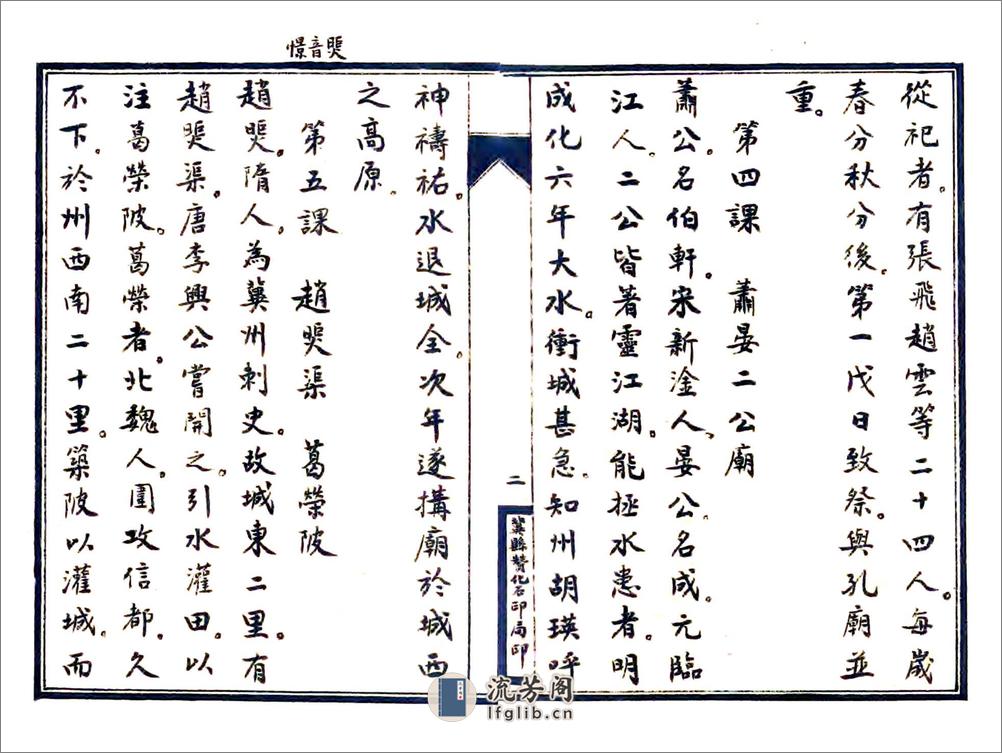 從祀者。有張飛趙雲等二十四人。每歲
春分秋分後。第一戊日致祭。與孔廟並
重。
第四課　蕭晏二公廟
蕭公。名伯軒。宋新淦人。晏公。名成。元臨
江人。二公皆著靈江湖。能拯水患者。明
成化六年大水。衝城甚急。知州胡瑛呼
二
冀縣贊化石印局印
神禱祐。水退城全。次年遂搆廟於城西
之高原。
第五課　趙煚渠　葛榮陂
煚音憬
趙煚。隋人。為冀州刺史。故城東二里。有
趙煚渠。唐李興公嘗開之。引水灌田。以
注葛榮陂。葛榮者。北魏人。圍攻信都。久
不下。於州西南二十里。築陂以灌城。而
流芳阁
lfglib.cn